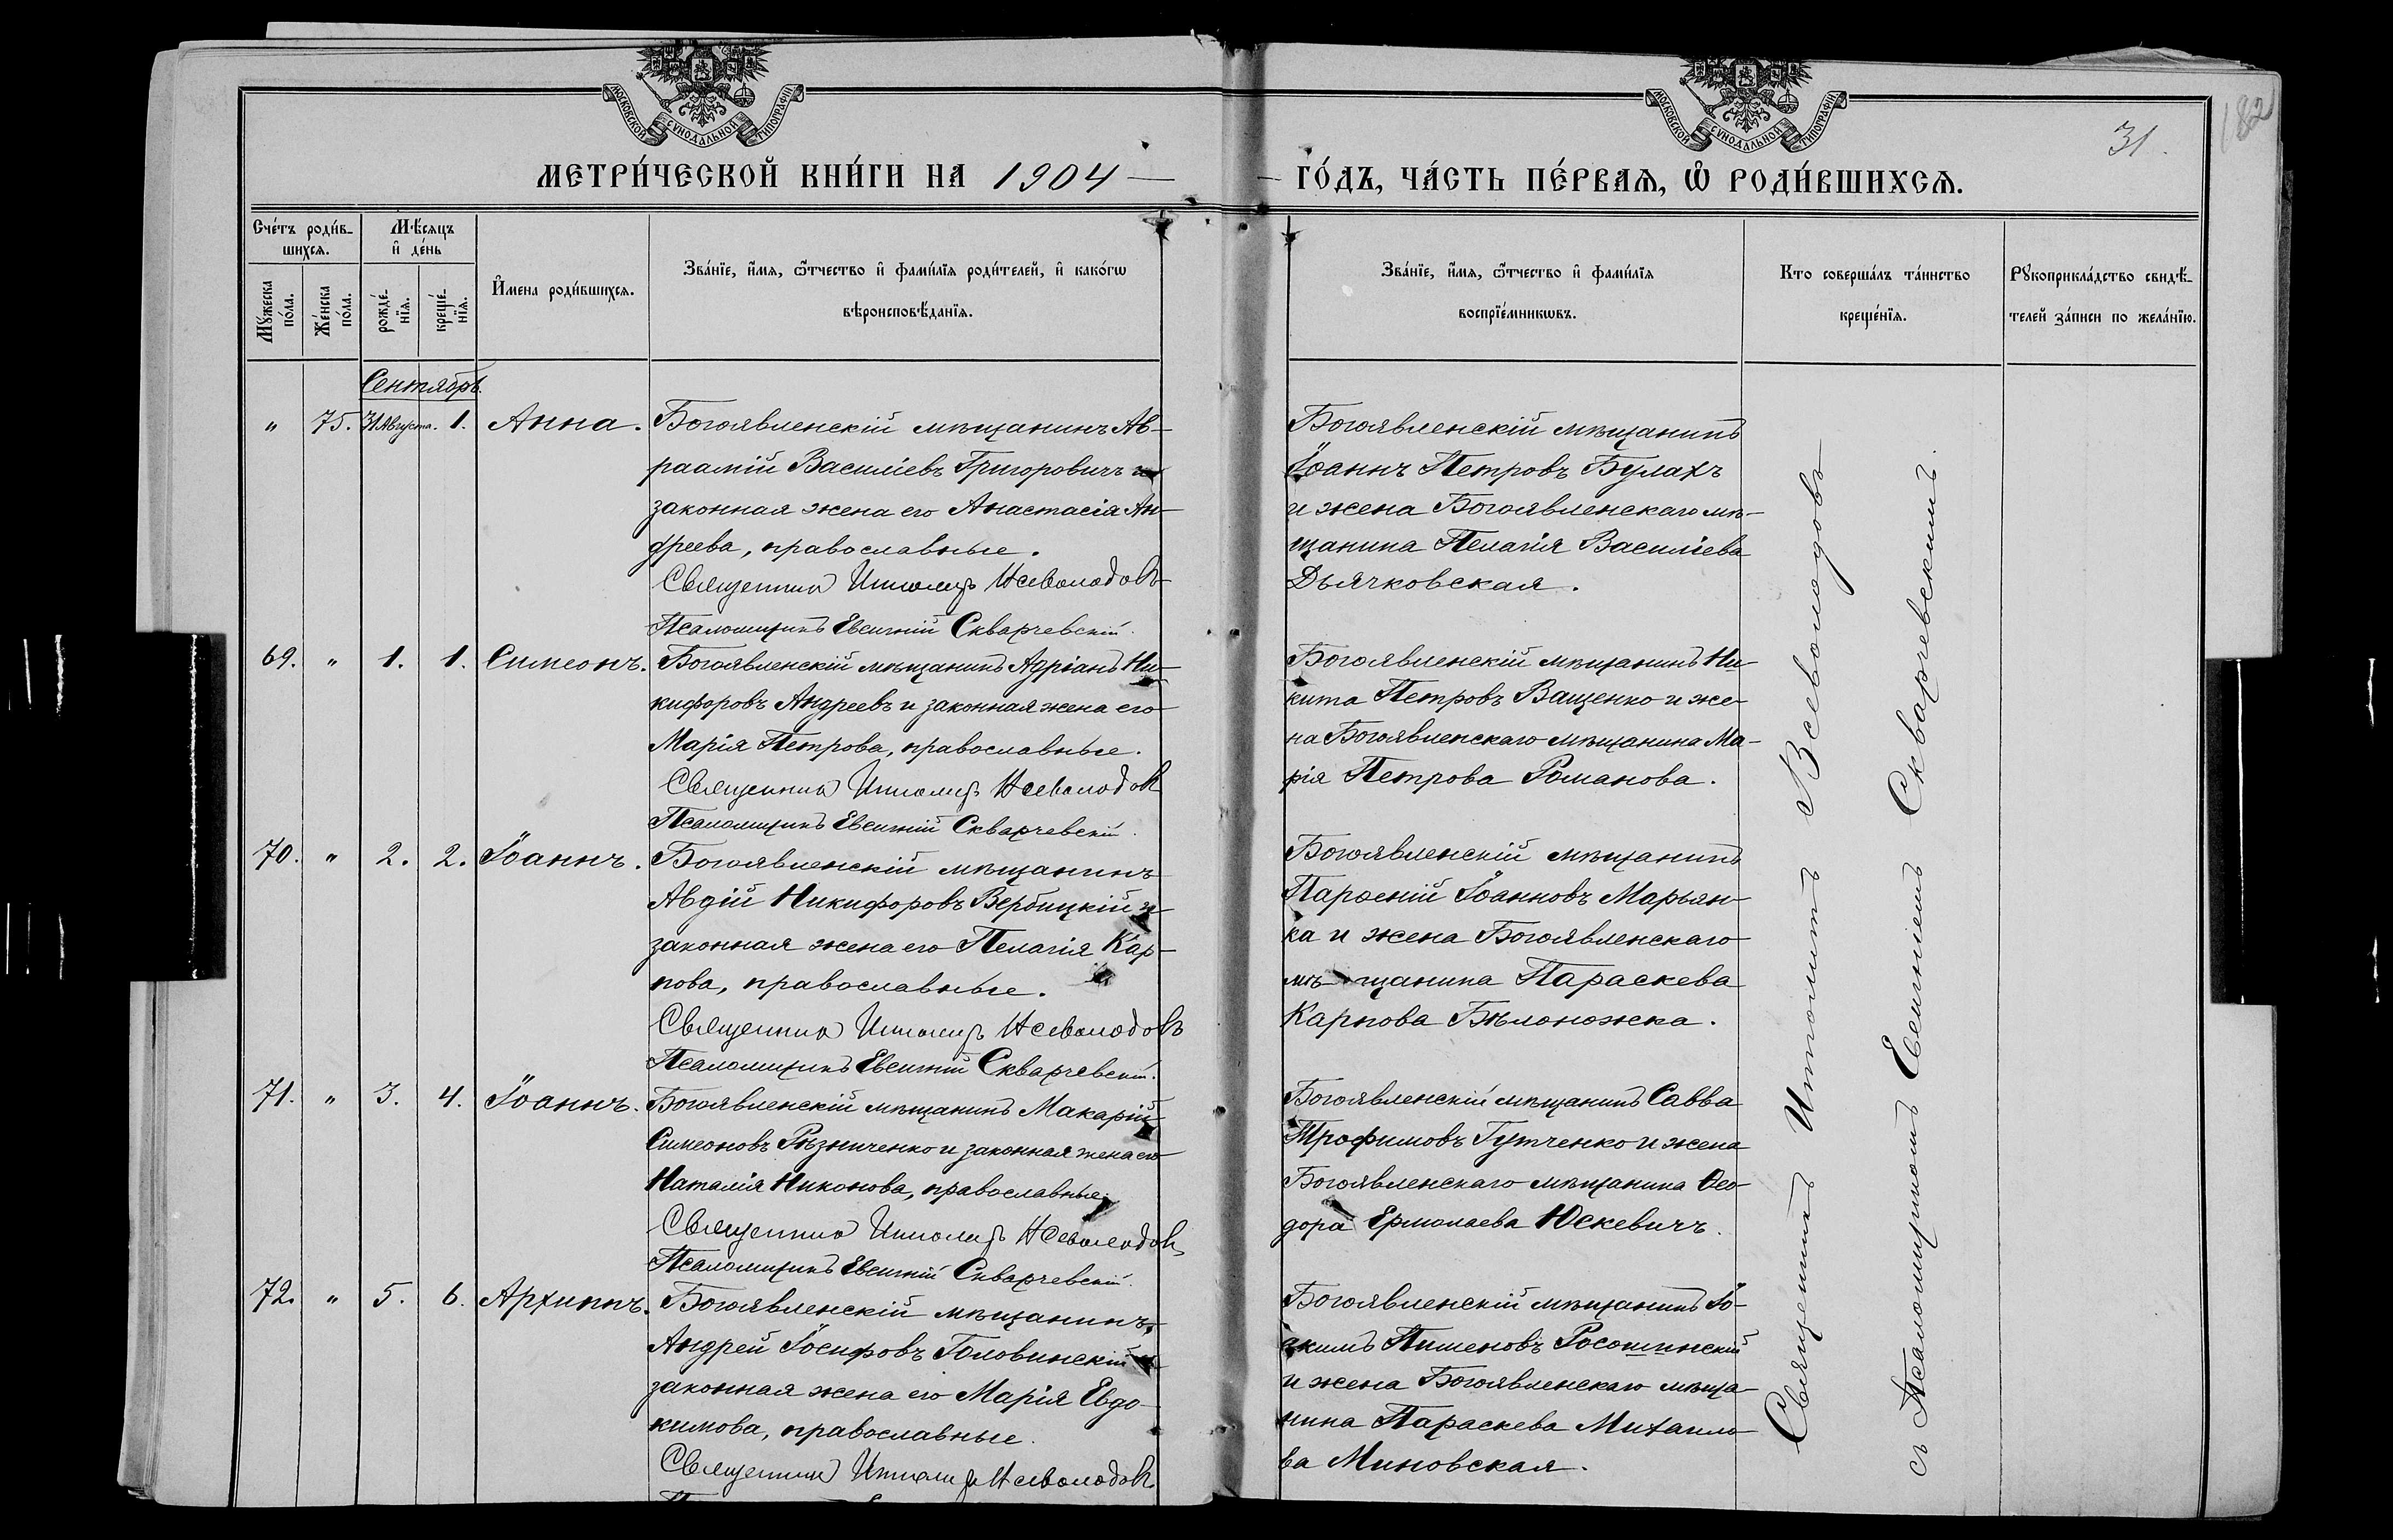 МОСКОВСКОЙ СѴНОДАЛЬНОЙ ТИПОГРАФІИ
МОСКОВСКОЙ СѴНОДАЛЬНОЙ ТИПОГРАФІИ
182
31.
МЕТРИ́ЧЕСКОЙ КНИ́ГИ НА 1904 —
— ГО́ДЪ, ЧА́СТЬ ПЕ́РВАѦ, Ѡ҆ РОДИ́ВШИХСѦ.
Сче́тъ роди́в-
шихсѧ.
Мѣ́сѧцъ
и҆ де́нь
Мꙋ́жеска
по́ла.
Же́нска
по́ла.
рожде́-
нїѧ.
креще́-
нїѧ.
И҆мена роди́вшихсѧ.
Зва́нїе, и҆́мѧ, ѻ҆́тчество и҆ фами́лїѧ роди́телей, и҆ како́гѡ
вѣроисповѣ́данїѧ.
Зва́нїе, и҆́мѧ, ѻ҆́тчество и҆ фами́лїѧ
воспрїе́мникѡвъ.
Кто соверша́лъ та́инство
креще́нїѧ.
Рꙋкоприкла́дство свидѣ́-
телей за́писи по жела́нїю.
Сентябрь.
" 75. 31 Августа. 1. Анна.
Богоявленскій мѣщанинъ Ав-
раамій Василіевъ Григоровичъ и
законная жена его Анастасія Ан-
дреева, православные.
Священникъ Ипполитъ Всеволодовъ
Псаломщикъ Евгеній Скварчевскій.
Богоявленскій мѣщанинъ
Іоаннъ Петровъ Булахъ
и жена Богоявленскаго мѣ-
щанина Пелагія Василіева
Дьячковская.
69. " 1. 1. Симеонъ.
Богоявленскій мѣщанинъ Адріанъ Ни-
кифоровъ Андреевъ и законная жена его
Марія Петрова, православные.
Священникъ Ипполитъ Всеволодовъ
Псаломщикъ Евгеній Скварчевскій.
Богоявленскій мѣщанинъ Ни-
кита Петровъ Ващенко и же-
на Богоявленскаго мѣщанина Ма-
рія Петрова Романова.
70. " 2. 2. Іоаннъ.
Богоявленскій мѣщанинъ
Авдій Никифоровъ Вербицкій и
законная жена его Пелагія Кар-
пова, православные.
Священникъ Ипполитъ Всеволодовъ
Псаломщикъ Евгеній Скварчевскій.
Богоявленскій мѣщанинъ
Парѳеній Іоанновъ Марьян-
ка и жена Богоявленскаго
мѣ-щанина Параскева
Карпова Бѣлоножка.
71. " 3. 4. Іоаннъ.
Богоявленскій мѣщанинъ Макарій
Симеоновъ Рѣзниченко и законная жена его
Наталія Никонова, православные.
Священникъ Ипполитъ Всеволодовъ
Псаломщикъ Евгеній Скварчевскій.
Богоявленскій мѣщанинъ Савва
Трофимовъ Гутченко и жена
Богоявленскаго мѣщанина Ѳео-
дора Ермолаева Юскевичъ.
72. " 5. 6. Архиппъ.
Богоявленскій мѣщанинъ
Андрей Іосифовъ Головинскій и
законная жена его Марія Евдо-
кимова, православные.
Священникъ Ипполитъ Всеволодовъ
Богоявленскій мѣщанинъ Іо-
акимъ Пименовъ Росошинскій
и жена Богоявленскаго мѣща-
нина Параскева Михаило-
ва Миновская.
Священникъ Ипполитъ Всеволодовъ
съ Псаломщикомъ Евгеніемъ Скварчевскимъ.